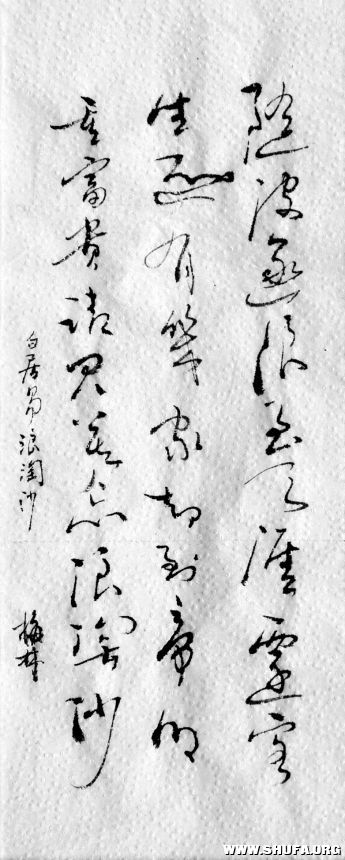 隨波逐浪到天涯遷客
生還有幾家却到帝鄉
重富貴請君莫忘浪淘沙
白居易浪淘沙
梅林
WWW.SHUFA.ORG